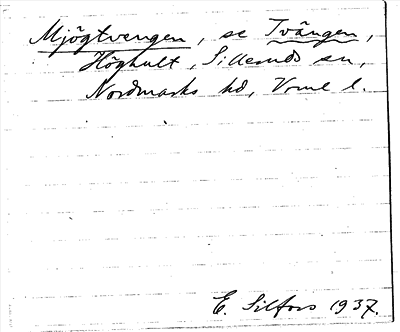 Mjögtvengen, se Tvängen,
Höghult, Silleruds sn,
Nordmarks hd, Vrml l.
E. Silfors 1937.